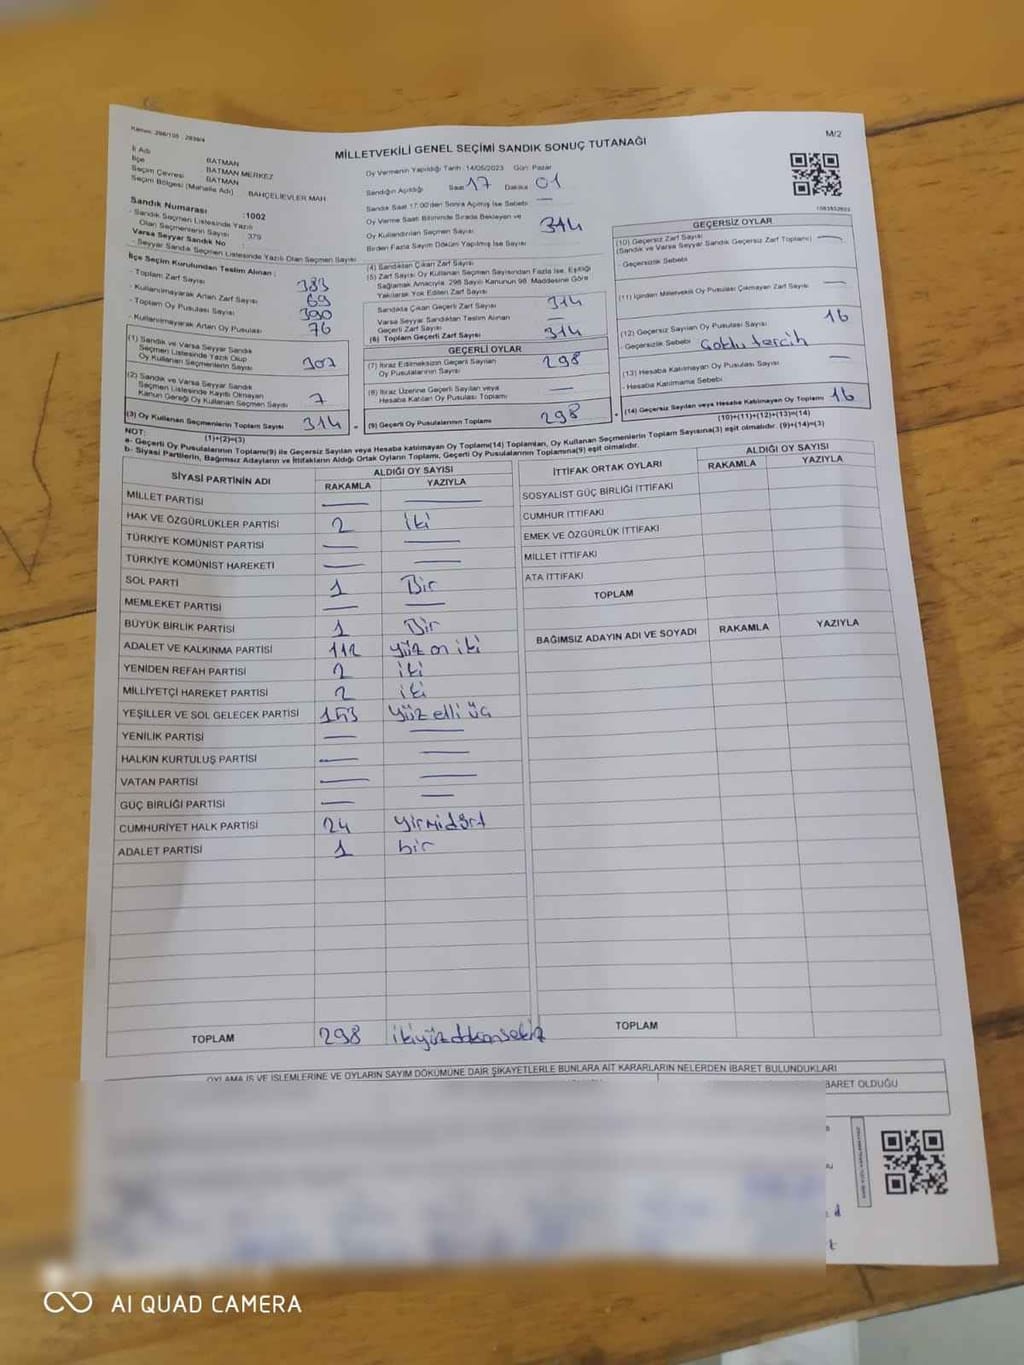 M/2
MİLLETVEKİLİ GENEL SEÇİMİ SANDIK SONUÇ TUTANAĞI
İl Adı BATMAN
İlçe BATMAN MERKEZ
Seçim Çevresi BATMAN
Seçim Bölgesi (Mahalle Adı) BAHÇELİEVLER MAH
Sandık Numarası :1002
- Sandık Seçmen Listesinde Yazılı
Olan Seçmenlerin Sayısı 379
Varsa Seyyar Sandık No :
- Seyyar Sandık Seçmen Listesinde Yazılı Olan Seçmen Sayısı
İlçe Seçim Kurulundan Teslim Alınan :
- Toplam Zarf Sayısı 383
- Kullanılmayarak Artan Zarf Sayısı 69
- Toplam Oy Pusulası Sayısı 390
- Kullanılmayarak Artan Oy Pusulası 76
(1) Sandık ve Varsa Seyyar Sandık
Seçmen Listesinde Yazılı Olup
Oy Kullanan Seçmenlerin Sayısı 307
(2) Sandık ve Varsa Seyyar Sandık
Seçmen Listesinde Kayıtlı Olmayan
Kanun Gereği Oy Kullanan Seçmen Sayısı 7
(3) Oy Kullanan Seçmenlerin Toplam Sayısı 314
(1)+(2)=(3)
Oy Vermenin Yapıldığı Tarih :14/05/2023 Gün: Pazar
Sandığın Açıldığı Saat 17 Dakika 01
Sandık Saat 17:00'den Sonra Açılmış İse Sebebi —
Oy Verme Saati Bitiminde Sırada Bekleyen ve
Oy Kullandırılan Seçmen Sayısı 314
Birden Fazla Sayım Döküm Yapılmış İse Sayısı
(4) Sandıktan Çıkan Zarf Sayısı
(5) Zarf Sayısı Oy Kullanan Seçmen Sayısından Fazla İse, Eşitliği
Sağlamak Amacıyla, 298 Sayılı Kanunun 98. Maddesine Göre
Yakılarak Yok Edilen Zarf Sayısı
Sandıkta Çıkan Geçerli Zarf Sayısı 314
Varsa Seyyar Sandıktan Teslim Alınan
Geçerli Zarf Sayısı —
(6) Toplam Geçerli Zarf Sayısı 314
GEÇERLİ OYLAR
(7) İtiraz Edilmeksizin Geçerli Sayılan
Oy Pusulalarının Sayısı 298
(8) İtiraz Üzerine Geçerli Sayılan veya
Hesaba Katılan Oy Pusulası Toplamı —
(9) Geçerli Oy Pusulalarının Toplamı 298
1083552622
GEÇERSİZ OYLAR
(10) Geçersiz Zarf Sayısı
(Sandık ve Varsa Seyyar Sandık Geçersiz Zarf Toplamı) —
- Geçersizlik Sebebi
(11) İçinden Milletvekili Oy Pusulası Çıkmayan Zarf Sayısı —
(12) Geçersiz Sayılan Oy Pusulası Sayısı 16
- Geçersizlik Sebebi Çoklu tercih
(13) Hesaba Katılmayan Oy Pusulası Sayısı —
- Hesaba Katılmama Sebebi
(14) Geçersiz Sayılan veya Hesaba Katılmayan Oy Toplamı 16
(10)+(11)+(12)+(13)=(14)
NOT:
a- Geçerli Oy Pusulalarının Toplamı(9) ile Geçersiz Sayılan veya Hesaba katılmayan Oy Toplamı(14) Toplamları, Oy Kullanan Seçmenlerin Toplam Sayısına(3) eşit olmalıdır. (9)+(14)=(3)
b- Siyasi Partilerin, Bağımsız Adayların ve İttifakların Aldığı Ortak Oyların Toplamı, Geçerli Oy Pusulalarının Toplamına(9) eşit olmalıdır.
SİYASİ PARTİNİN ADI ALDIĞI OY SAYISI
RAKAMLA YAZIYLA
MİLLET PARTİSİ — —
HAK VE ÖZGÜRLÜKLER PARTİSİ 2 iki
TÜRKİYE KOMÜNİST PARTİSİ — —
TÜRKİYE KOMÜNİST HAREKETİ — —
SOL PARTİ 1 Bir
MEMLEKET PARTİSİ — —
BÜYÜK BİRLİK PARTİSİ 1 Bir
ADALET VE KALKINMA PARTİSİ 112 yüz on iki
YENİDEN REFAH PARTİSİ 2 iki
MİLLİYETÇİ HAREKET PARTİSİ 2 iki
YEŞİLLER VE SOL GELECEK PARTİSİ 153 yüz elli üç
YENİLİK PARTİSİ — —
HALKIN KURTULUŞ PARTİSİ — —
VATAN PARTİSİ — —
GÜÇ BİRLİĞİ PARTİSİ — —
CUMHURİYET HALK PARTİSİ 24 yirmidört
ADALET PARTİSİ 1 bir
TOPLAM 298 ikiyüzdoksansekiz
İTTİFAK ORTAK OYLARI ALDIĞI OY SAYISI
RAKAMLA YAZIYLA
SOSYALİST GÜÇ BİRLİĞİ İTTİFAKI
CUMHUR İTTİFAKI
EMEK VE ÖZGÜRLÜK İTTİFAKI
MİLLET İTTİFAKI
ATA İTTİFAKI
TOPLAM
BAĞIMSIZ ADAYIN ADI VE SOYADI RAKAMLA YAZIYLA
TOPLAM
OYLAMA İŞ VE İŞLEMLERİNE VE OYLARIN SAYIM DÖKÜMÜNE DAİR ŞİKAYETLERLE BUNLARA AİT KARARLARIN NELERDEN İBARET BULUNDUKLARI
BARET OLDUĞU
AI QUAD CAMERA